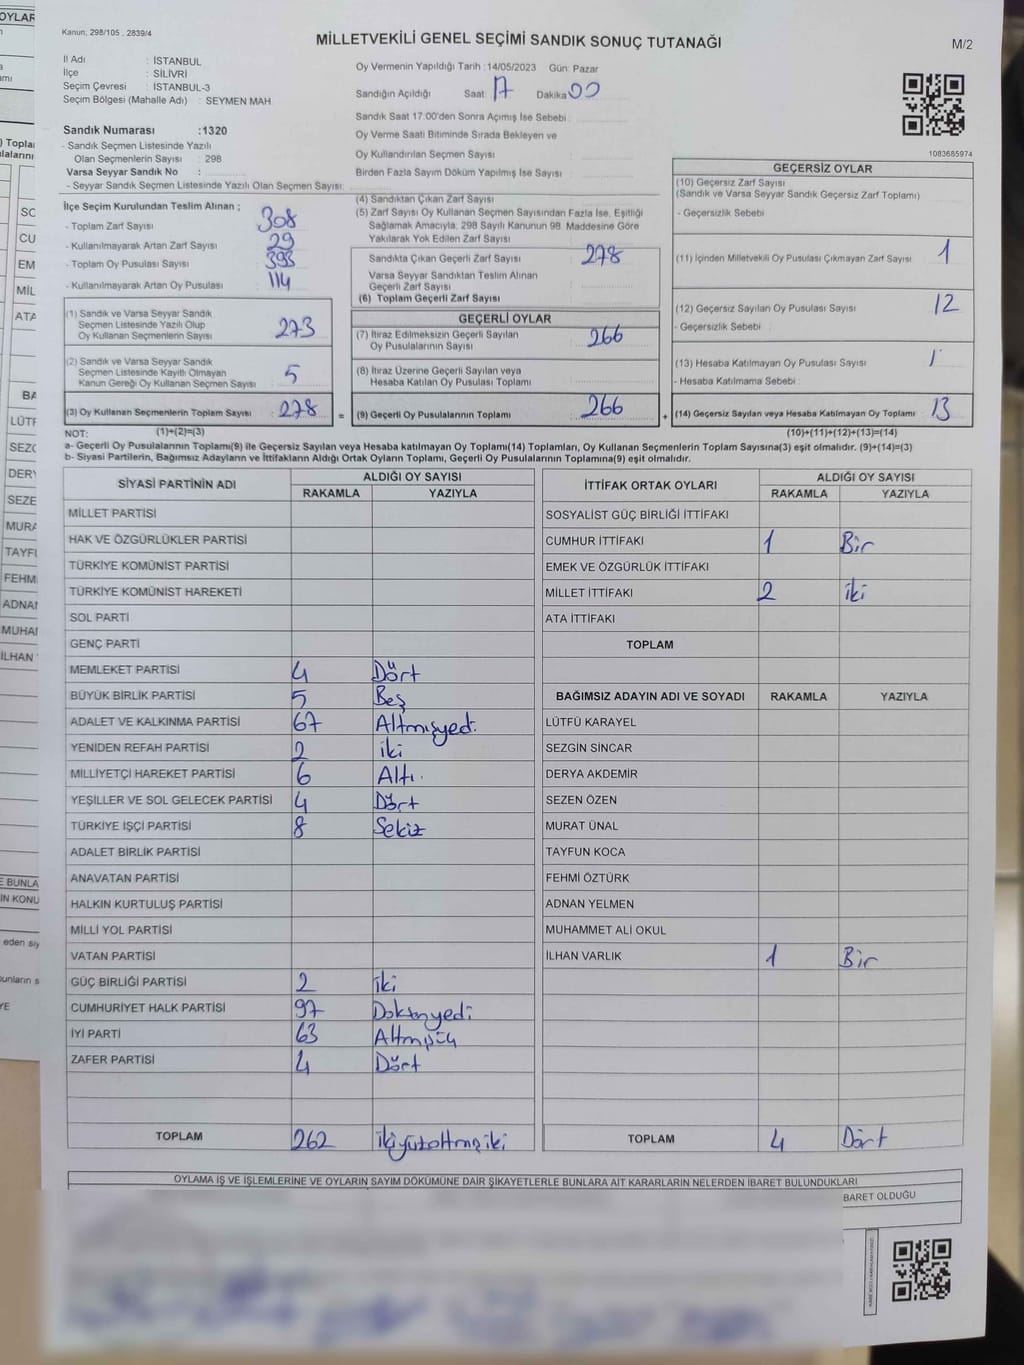 Kanun, 298/105 , 2839/4
MİLLETVEKİLİ GENEL SEÇİMİ SANDIK SONUÇ TUTANAĞI
M/2
İl Adı : İSTANBUL
İlçe : SİLİVRİ
Seçim Çevresi : İSTANBUL-3
Seçim Bölgesi (Mahalle Adı) : SEYMEN MAH.
Oy Vermenin Yapıldığı Tarih :14/05/2023 Gün: Pazar
Sandığın Açıldığı Saat: 17 Dakika 00
Sandık Saat 17.00'den Sonra Açımış İse Sebebi :
Oy Verme Saati Bitiminde Sırada Bekleyen ve
Oy Kullandırılan Seçmen Sayısı :
Birden Fazla Sayım Döküm Yapılmış İse Sayısı :
1083685974
Sandık Numarası :1320
- Sandık Seçmen Listesinde Yazılı
Olan Seçmenlerin Sayısı : 298
Varsa Seyyar Sandık No :
- Seyyar Sandık Seçmen Listesinde Yazılı Olan Seçmen Sayısı:
İlçe Seçim Kurulundan Teslim Alınan ;
- Toplam Zarf Sayısı : 308
- Kullanılmayarak Artan Zarf Sayısı : 29
- Toplam Oy Pusulası Sayısı : 393
- Kullanılmayarak Artan Oy Pusulası : 114
(1) Sandık ve Varsa Seyyar Sandık
Seçmen Listesinde Yazılı Olup
Oy Kullanan Seçmenlerin Sayısı : 273
(2) Sandık ve Varsa Seyyar Sandık
Seçmen Listesinde Kayıtlı Olmayan
Kanun Gereği Oy Kullanan Seçmen Sayısı : 5
(3) Oy Kullanan Seçmenlerin Toplam Sayısı : 278
(1)+(2)=(3)
(4) Sandıktan Çıkan Zarf Sayısı :
(5) Zarf Sayısı Oy Kullanan Seçmen Sayısından Fazla İse, Eşitliği
Sağlamak Amacıyla, 298 Sayılı Kanunun 98. Maddesine Göre
Yakılarak Yok Edilen Zarf Sayısı :
Sandıkta Çıkan Geçerli Zarf Sayısı : 278
Varsa Seyyar Sandıktan Teslim Alınan
Geçerli Zarf Sayısı :
(6) Toplam Geçerli Zarf Sayısı :
GEÇERLİ OYLAR
(7) İtiraz Edilmeksizin Geçerli Sayılan
Oy Pusulalarının Sayısı : 266
(8) İtiraz Üzerine Geçerli Sayılan veya
Hesaba Katılan Oy Pusulası Toplamı :
= (9) Geçerli Oy Pusulalarının Toplamı : 266 +
GEÇERSİZ OYLAR
(10) Geçersiz Zarf Sayısı
(Sandık ve Varsa Seyyar Sandık Geçersiz Zarf Toplamı) :
- Geçersizlik Sebebi :
(11) İçinden Milletvekili Oy Pusulası Çıkmayan Zarf Sayısı : 1
(12) Geçersiz Sayılan Oy Pusulası Sayısı : 12
- Geçersizlik Sebebi :
(13) Hesaba Katılmayan Oy Pusulası Sayısı :
- Hesaba Katılmama Sebebi :
(14) Geçersiz Sayılan veya Hesaba Katılmayan Oy Toplamı : 13
(10)+(11)+(12)+(13)=(14)
NOT:
a- Geçerli Oy Pusulalarının Toplamı(9) ile Geçersiz Sayılan veya Hesaba katılmayan Oy Toplamı(14) Toplamları, Oy Kullanan Seçmenlerin Toplam Sayısına(3) eşit olmalıdır. (9)+(14)=(3)
b- Siyasi Partilerin, Bağımsız Adayların ve İttifakların Aldığı Ortak Oyların Toplamı, Geçerli Oy Pusulalarının Toplamına(9) eşit olmalıdır.
SİYASİ PARTİNİN ADI ALDIĞI OY SAYISI
RAKAMLA YAZIYLA
MİLLET PARTİSİ
HAK VE ÖZGÜRLÜKLER PARTİSİ
TÜRKİYE KOMÜNİST PARTİSİ
TÜRKİYE KOMÜNİST HAREKETİ
SOL PARTİ
GENÇ PARTİ
MEMLEKET PARTİSİ 4 Dört
BÜYÜK BİRLİK PARTİSİ 5 Beş
ADALET VE KALKINMA PARTİSİ 67 Altmışyedi
YENİDEN REFAH PARTİSİ 2 iki
MİLLİYETÇİ HAREKET PARTİSİ 6 Altı.
YEŞİLLER VE SOL GELECEK PARTİSİ 4 Dört
TÜRKİYE İŞÇİ PARTİSİ 8 Sekiz
ADALET BİRLİK PARTİSİ
ANAVATAN PARTİSİ
HALKIN KURTULUŞ PARTİSİ
MİLLİ YOL PARTİSİ
VATAN PARTİSİ
GÜÇ BİRLİĞİ PARTİSİ 2 iki
CUMHURİYET HALK PARTİSİ 97 Doksanyedi
İYİ PARTİ 63 Altmışüç
ZAFER PARTİSİ 4 Dört
TOPLAM 262 ikiyüzaltmışiki
İTTİFAK ORTAK OYLARI ALDIĞI OY SAYISI
RAKAMLA YAZIYLA
SOSYALİST GÜÇ BİRLİĞİ İTTİFAKI
CUMHUR İTTİFAKI 1 Bir
EMEK VE ÖZGÜRLÜK İTTİFAKI
MİLLET İTTİFAKI 2 iki
ATA İTTİFAKI
TOPLAM
BAĞIMSIZ ADAYIN ADI VE SOYADI RAKAMLA YAZIYLA
LÜTFÜ KARAYEL
SEZGİN SİNCAR
DERYA AKDEMİR
SEZEN ÖZEN
MURAT ÜNAL
TAYFUN KOCA
FEHMİ ÖZTÜRK
ADNAN YELMEN
MUHAMMET ALİ OKUL
İLHAN VARLIK 1 Bir
TOPLAM 4 Dört
OYLAMA İŞ VE İŞLEMLERİNE VE OYLARIN SAYIM DÖKÜMÜNE DAİR ŞİKAYETLERLE BUNLARA AİT KARARLARIN NELERDEN İBARET BULUNDUKLARI
BARET OLDUĞU